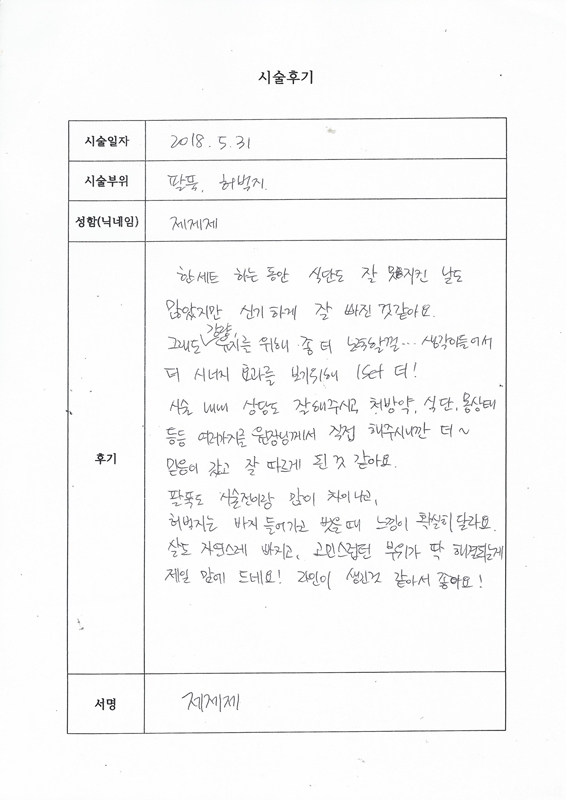 시술후기
시술일자 2018. 5. 31
시술부위 팔뚝, 허벅지.
성함(닉네임) 제제제
후기
한세트 하는 동안 식단도 잘 못지킨 날도
많았지만 신기하게 잘 빠진 것같아요.
그래도 감량, 유지를 위해 좀 더 노력할껄... 생각이들어서
더 시너지 효과를 보기위해 1set 더!
시술 내내 상담도 잘해주시고 처방약, 식단, 몸상태
등등 여러가지를 원장님께서 직접 해주시니깐 더~
믿음이 갔고 잘 따르게 된 것 같아요.
팔뚝도 시술전이랑 많이 차이나고,
허벅지는 바지 들어가고 벗을때 느낌이 확실히 달라요.
살도 자연스레 빠지고, 고민스럽던 부위가 딱 해결되는게
제일 맘에 드네요! 라인이 생긴것 같아서 좋아요!
서명 제제제